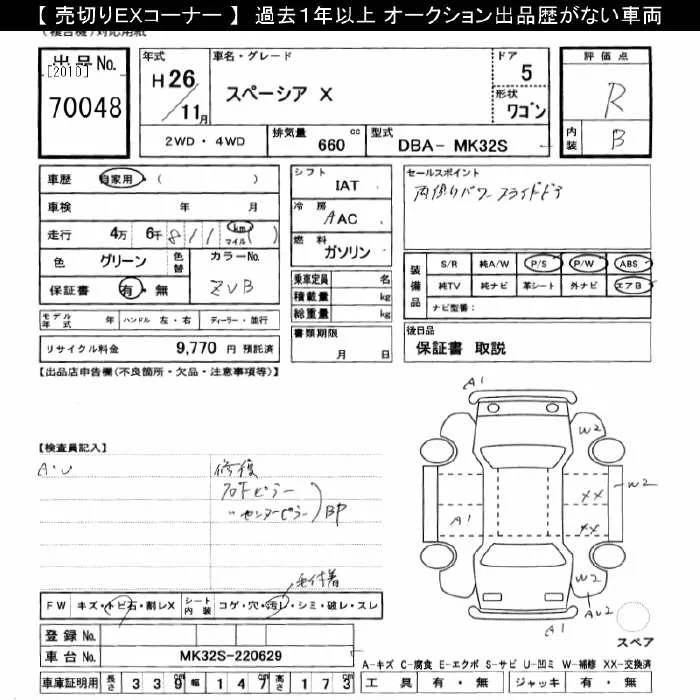 【 売切りEXコーナー 】 過去1年以上 オークション出品歴がない車両
出品No.
[2010]
70048
年式
H26/11月
車名・グレード
スペーシア X
ドア
5
形状
ワゴン
評価点
R
内装
B
2WD・4WD
排気量
660 cc
型式
DBA- MK32S
車歴 自家用・( )
車検 年 月
走行 4万 6千 8 1 1 km マイル ( )
色 グリーン
色替
カラーNo.
ZVB
保証書 有・無
モデル年式 年 ハンドル 左・右 ディーラー・並行
リサイクル料金 9,770 円 預託済
シフト
IAT
冷房
AAC
燃料
ガソリン
乗車定員 名
積載量 kg
総重量 kg
書類期限
月 日
セールスポイント
両側パワースライドドア
装備品
S/R 純A/W P/S P/W ABS
純TV 純ナビ 革シート 外ナビ エアB
ナビ型番:
後日品
保証書 取説
【出品店申告欄(不良箇所・欠品・注意事項等)】
【検査員記入】
A・U
修復
フロトピラー
〃センターピラー
BP
毛付着
FW キズ・トビ石・割レX
シート内装 コゲ・穴・汚レ・シミ・破レ・スレ
登録 No.
車台 No. MK32S-220629
車庫証明用 長さ 339cm 幅 147cm 高さ 173cm
A1
W2
W2
XX
A1
XX
W2
AU2
スペア
A-キズ C-腐食 E-エクボ S-サビ U-凹ミ W-補修 XX-交換済
工具 有・無 ジャッキ 有・無